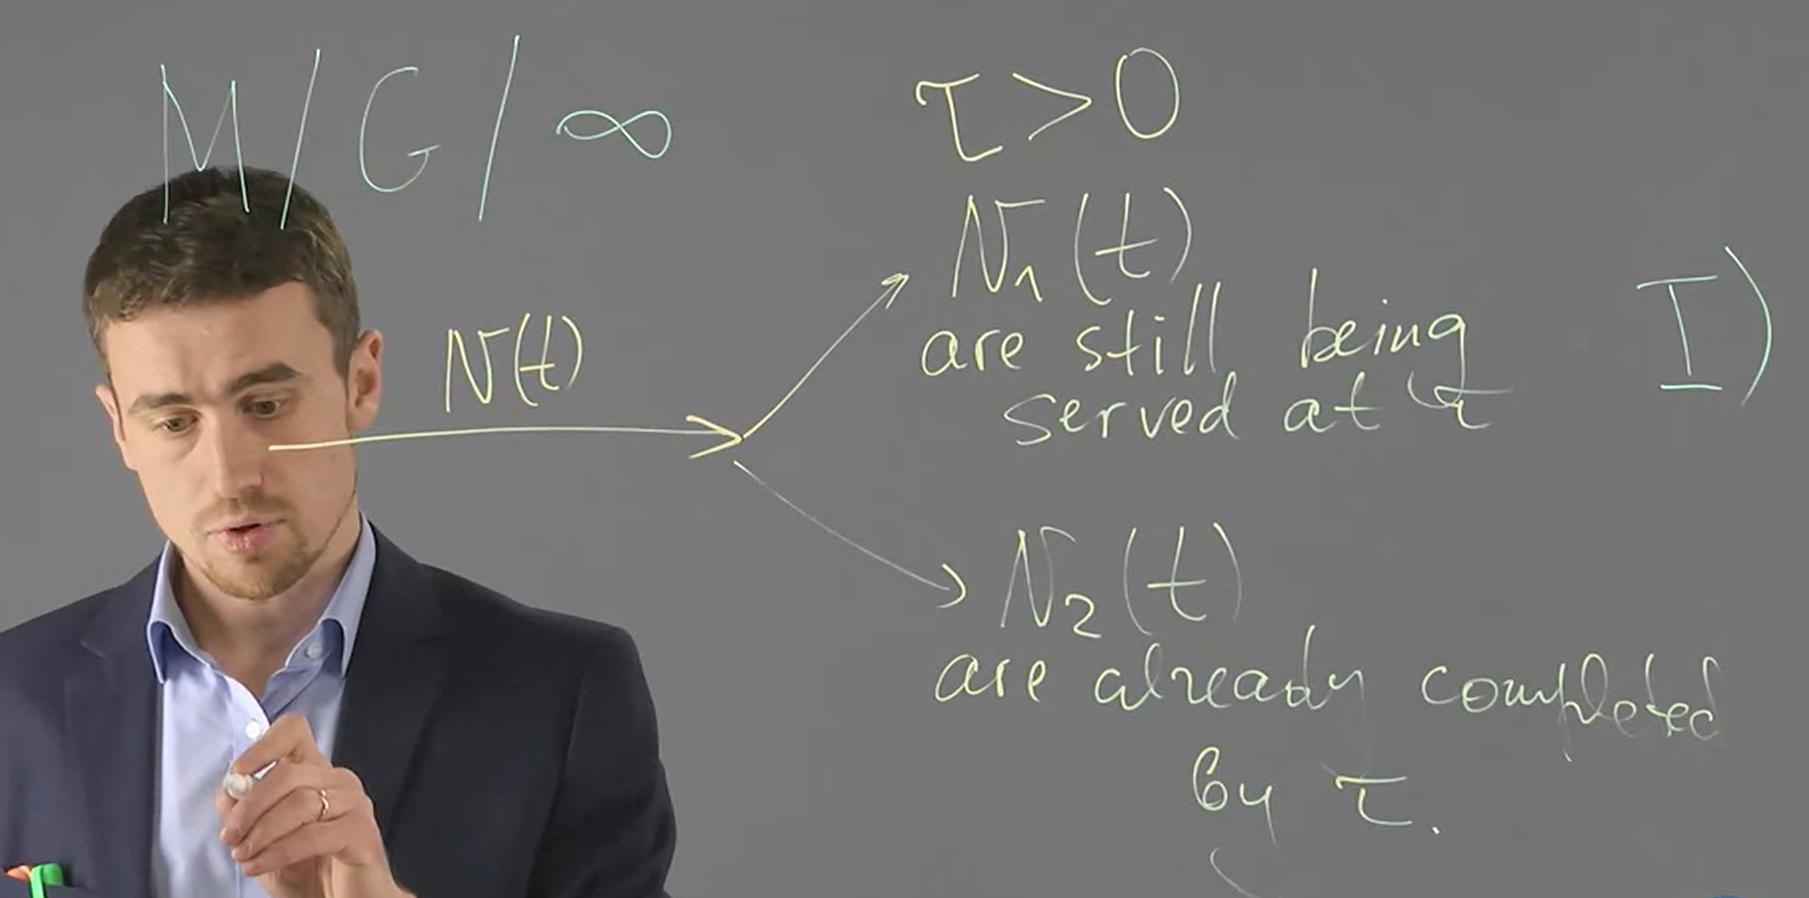 M/G/∞
τ > 0
N(t)
N₁(t)
are still being
served at τ
I)
N₂(t)
are already completed
by τ.